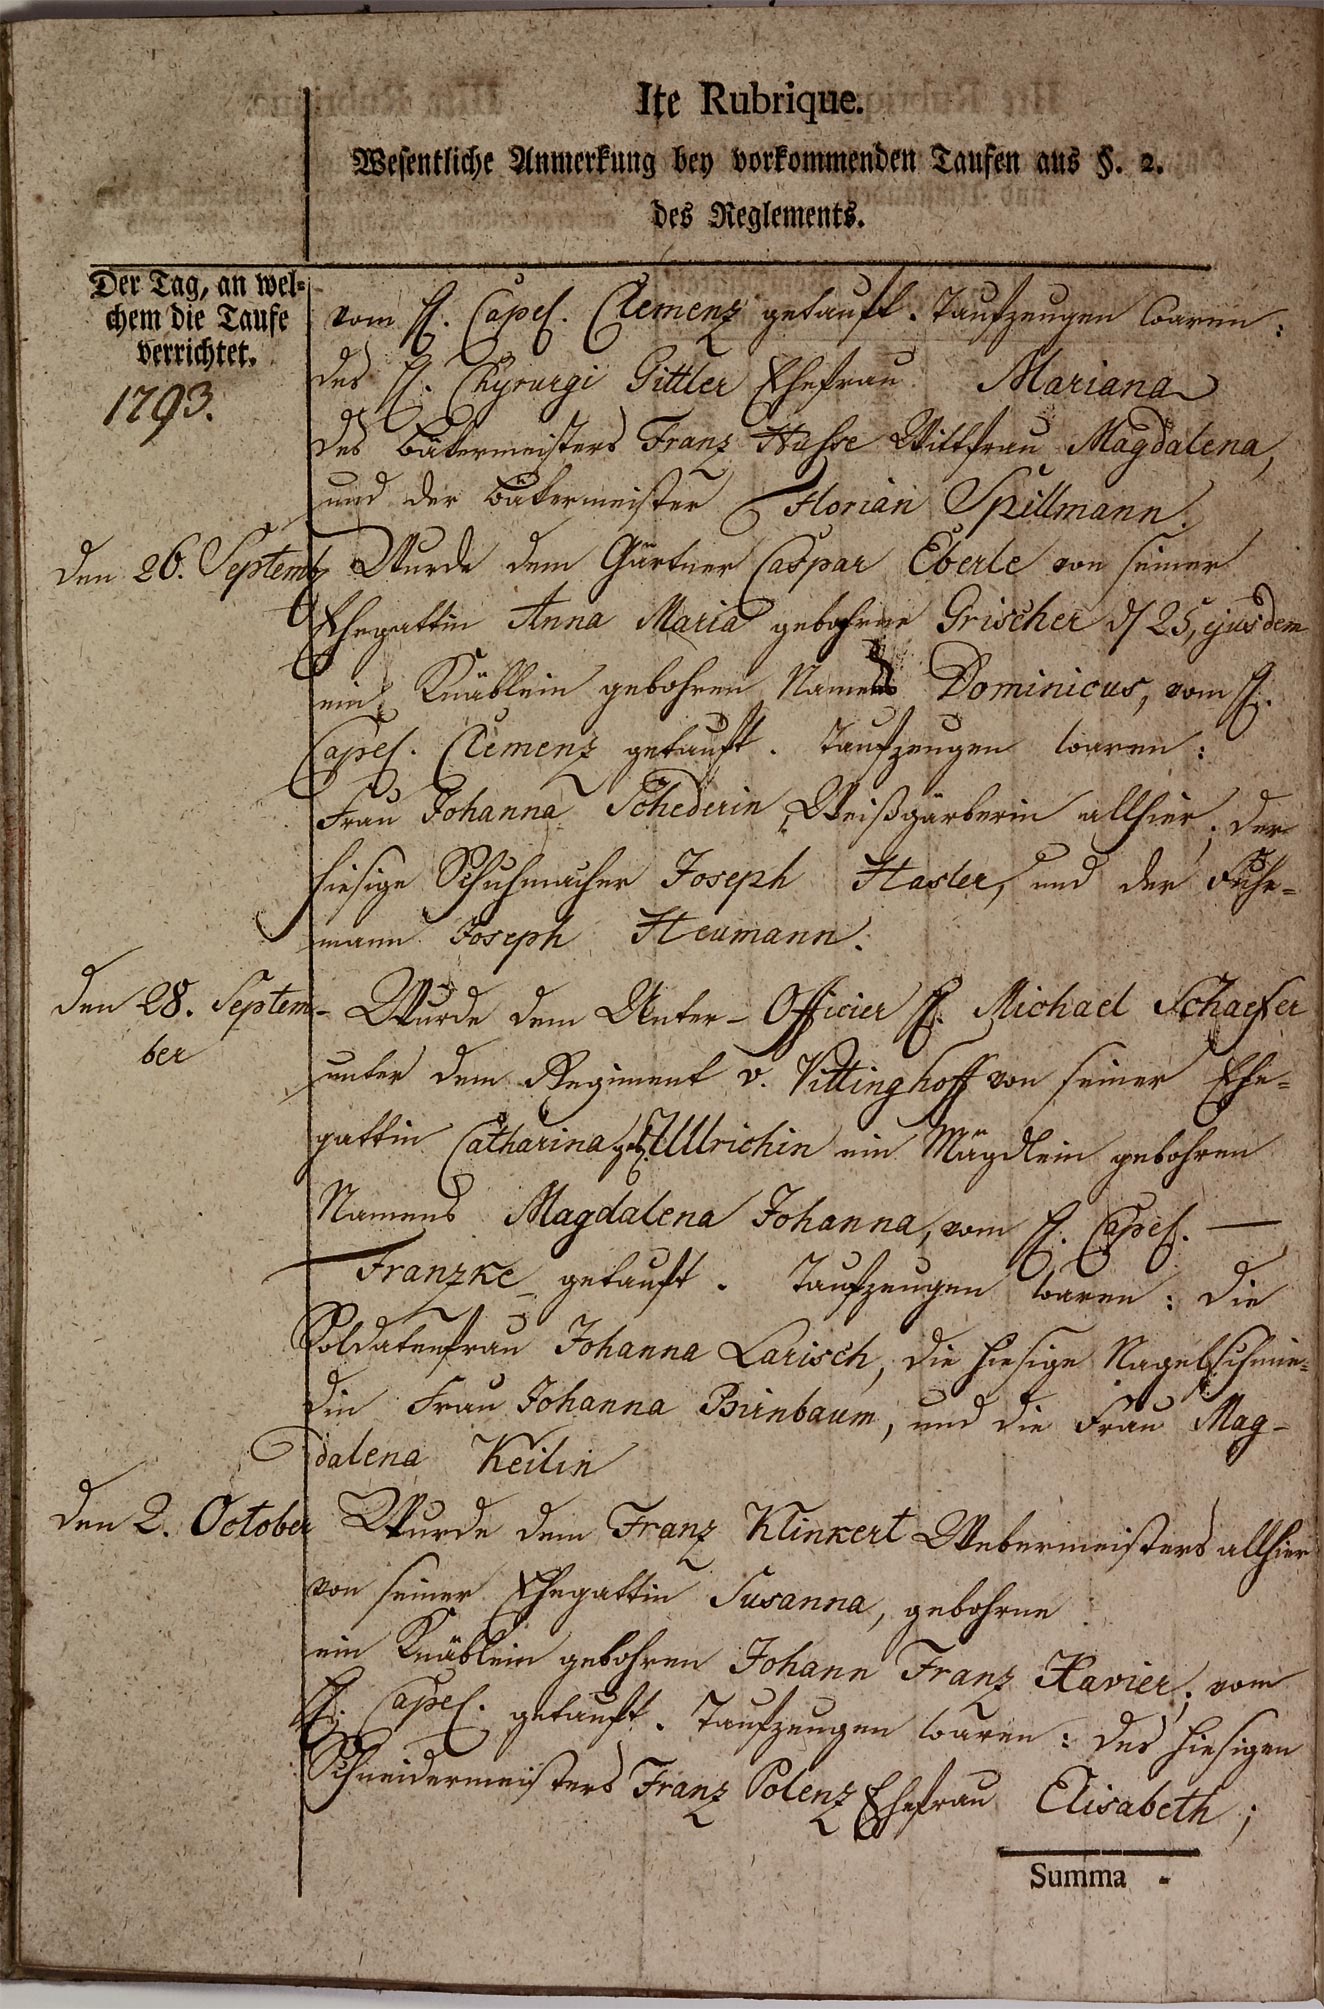 Ite Rubrique.
Wesentliche Anmerkung bey vorkommenden Taufen aus §. 2.
des Reglements.
Der Tag, an wel-
chem die Taufe
verrichtet.
1793.
vom H. Capel. Clemenz getauft. Taufzeugen waren:
des H. Chyrurgi Gittler Ehefrau Mariana
des Bäkermeisters Franz Hasse Wittfrau Magdalena,
und der Bäkermeister Florian Spillmann.
den 26. Septemb
Wurde dem Gärtner Caspar Eberle von seiner
Ehegattin Anna Maria gebohrne Grischer d 25, ejusdem
ein Knäblein gebohren Namens Dominicus, vom H.
Capel. Clemenz getauft. Taufzeugen waren:
Frau Johanna Schederin, Weißgärberin allhier, der
hiesige Schuhmacher Joseph Hasler, und der Fuhr-
mann Joseph Heumann.
den 28. Septem-
ber
Wurde dem Unter-Officier H. Michael Schaefer
unter dem Regiment v. Vittinghoff von seiner Ehe-
gattin Catharina geb. Ullrichin ein Mägdlein gebohren
Namens Magdalena Johanna, vom H. Capel. —
Franzke getauft. Taufzeugen waren: die
Soldatenfrau Johanna Larisch, die hiesige Nagelschmie-
din Frau Johanna Birnbaum, und die Frau Mag-
dalena Keilin
den 2. October
Wurde dem Franz Klinkert Webermeisters allhier
von seiner Ehegattin Susanna, gebohrne
ein Knäblein gebohren Johann Franz Xavier, vom
H. Capel. getauft. Taufzeugen waren: des hiesigen
Schneidermeisters Franz Polenz Ehefrau Elisabeth;
Summa -